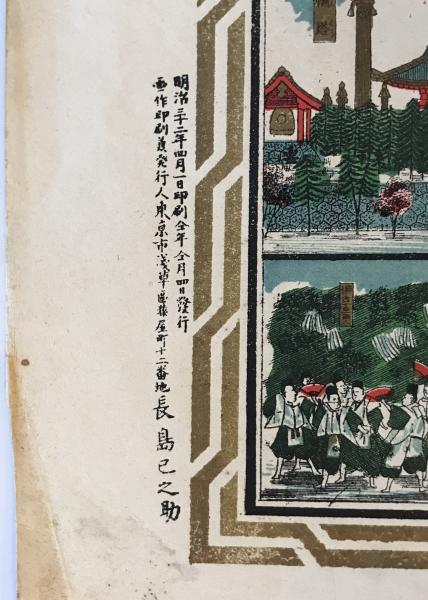 明治三十二年四月一日印刷仝年仝月四日發行
画作印刷兼發行人東京市浅草區猿屋町十二番地長島巳之助